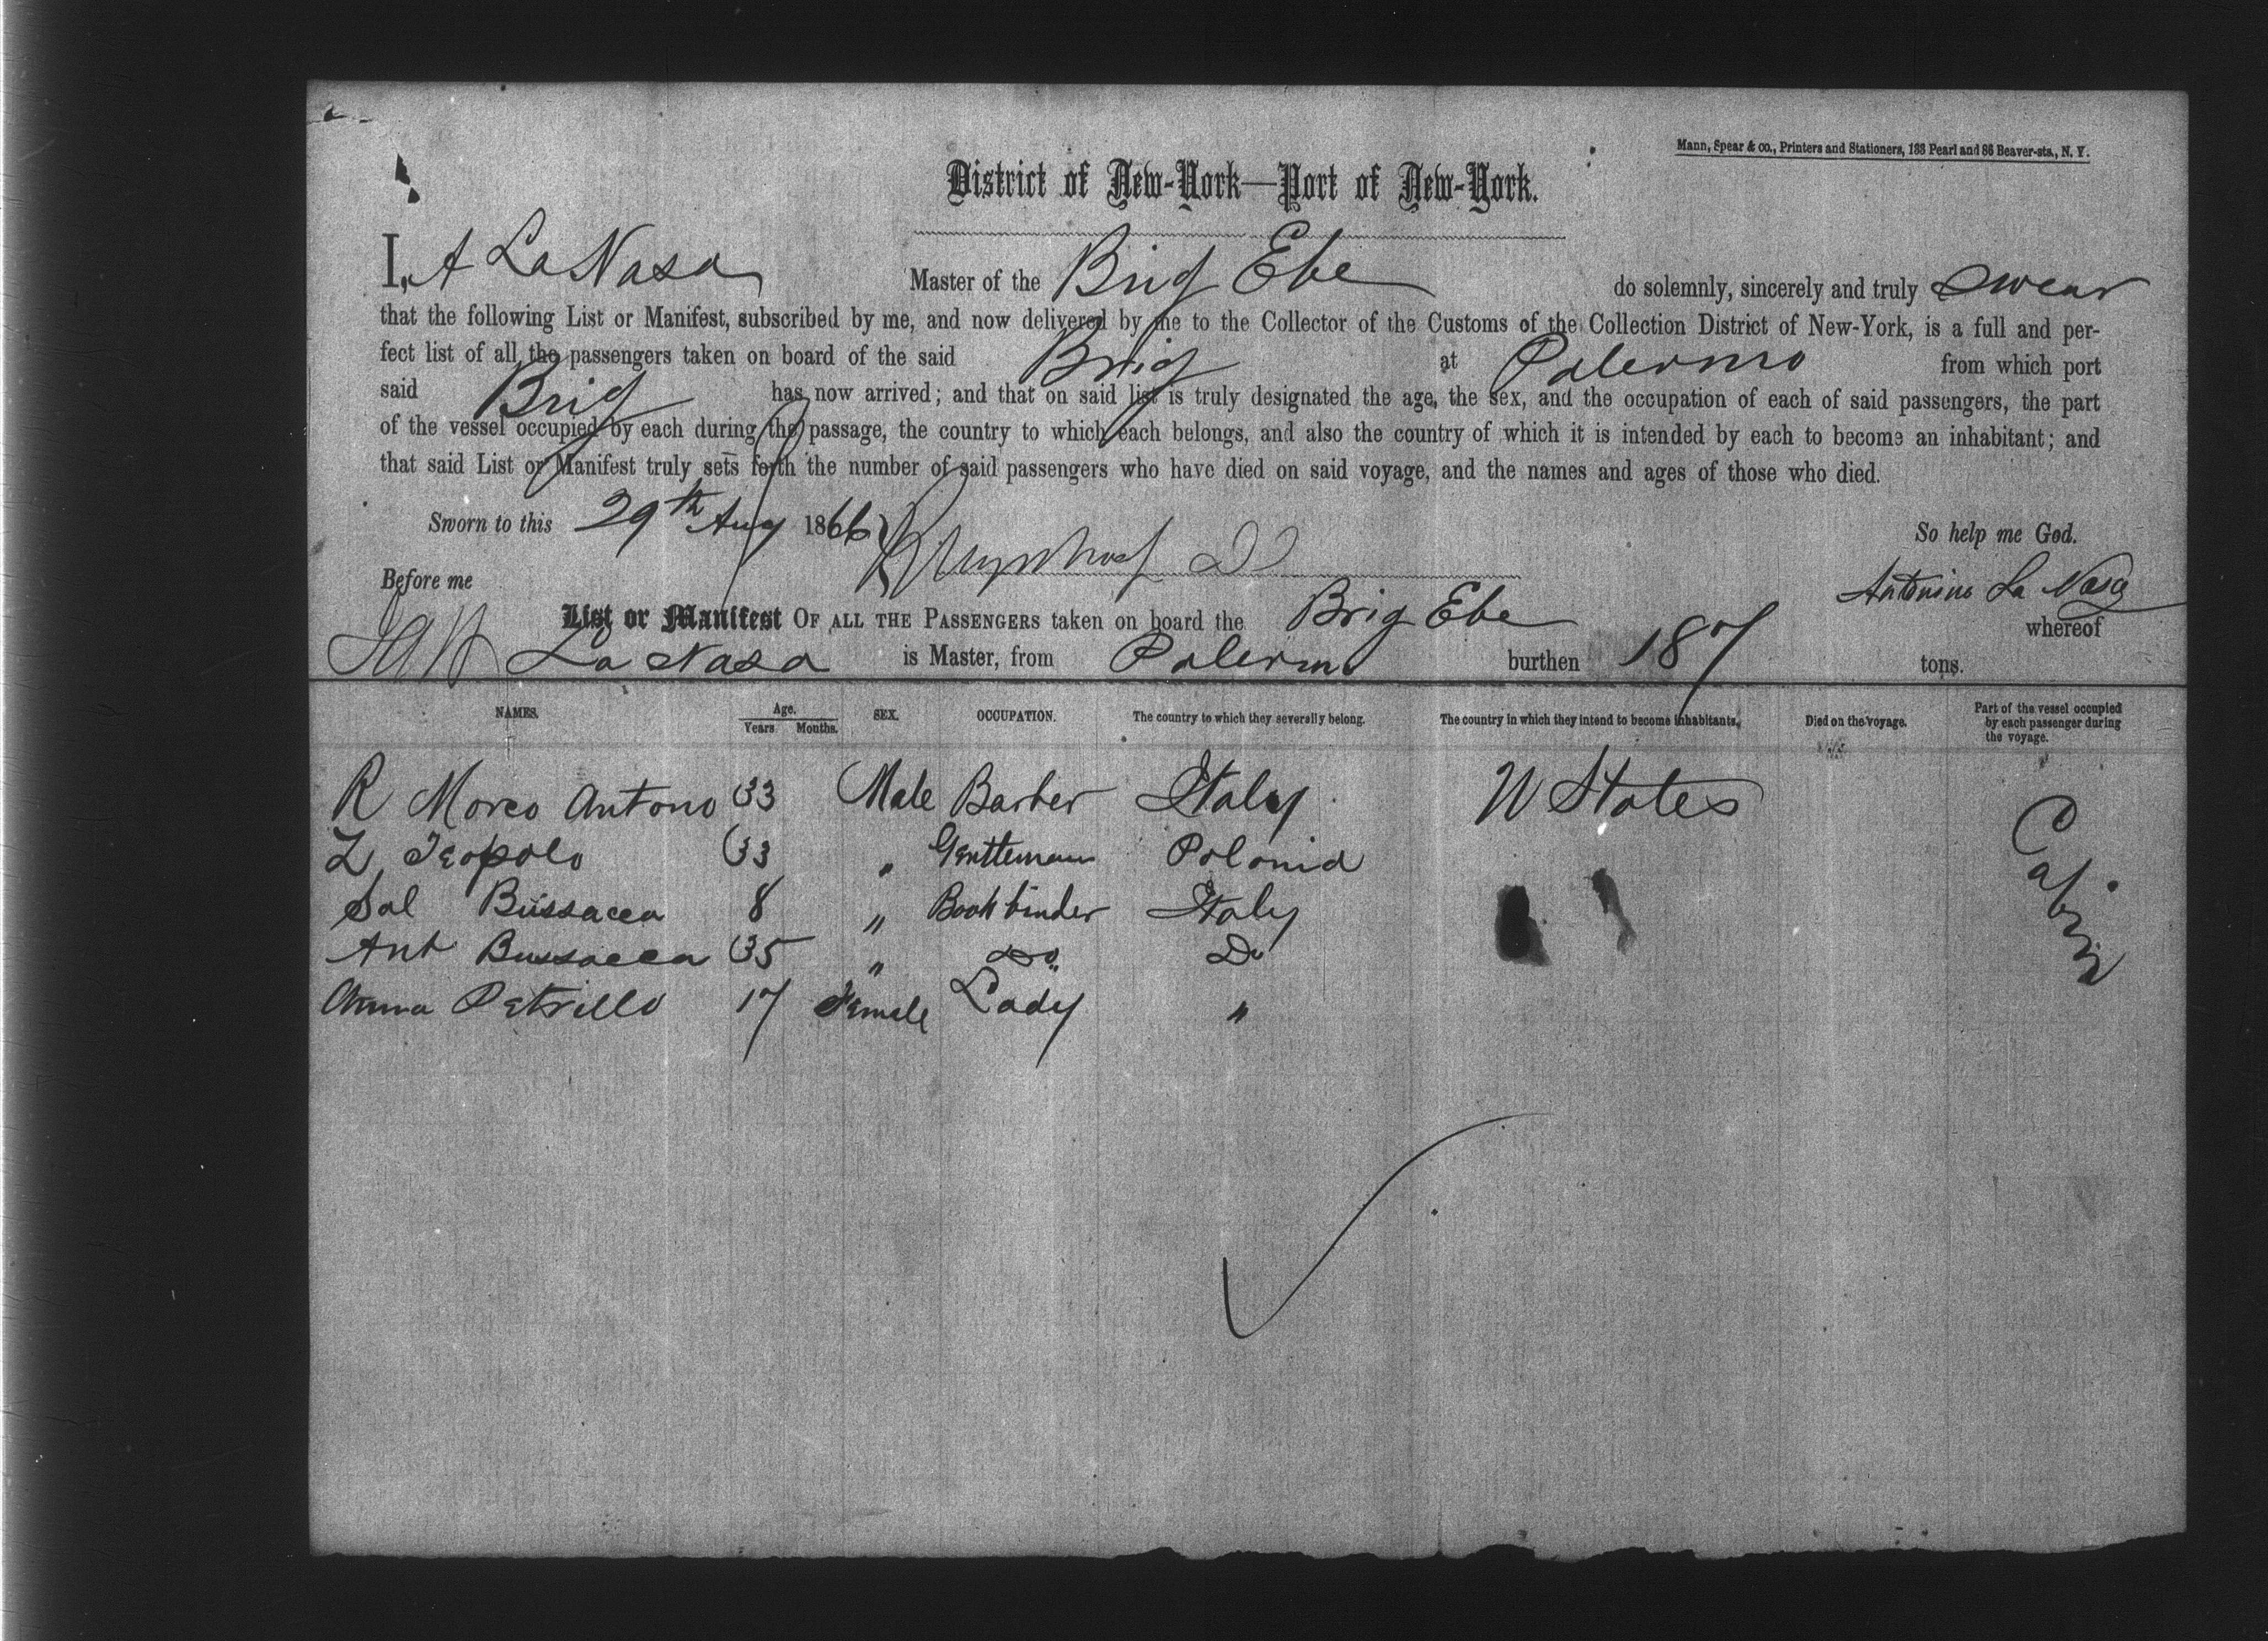 Mann, Spear & co., Printers and Stationers, 133 Pearl and 86 Beaver-sts., N. Y.
District of New-York—Port of New-York.
I, A La Nasa Master of the Brig Ebe do solemnly, sincerely and truly swear
that the following List or Manifest, subscribed by me, and now delivered by me to the Collector of the Customs of the Collection District of New-York, is a full and per-
fect list of all the passengers taken on board of the said Brig at Palermo from which port
said Brig has now arrived; and that on said list is truly designated the age, the sex, and the occupation of each of said passengers, the part
of the vessel occupied by each during the passage, the country to which each belongs, and also the country of which it is intended by each to become an inhabitant; and
that said List or Manifest truly sets forth the number of said passengers who have died on said voyage, and the names and ages of those who died.
Sworn to this 29th Aug 1866 So help me God.
Before me Antonino La Nasa
List or Manifest OF ALL THE PASSENGERS taken on board the Brig Ebe whereof
La Nasa is Master, from Palermo burthen 187 tons.
NAMES. Age. Years Months. SEX. OCCUPATION. The country to which they severally belong. The country in which they intend to become inhabitants. Died on the voyage. Part of the vessel occupied by each passenger during the voyage.
R Morco Antono 33 Male Barber Italy U States Cabin
L Teopolo 33 " Gentleman Polonia
Sal Bussacca 8 " Bookbinder Italy
Ant Bussacca 35 " Do Do
Anna Petrillo 17 Female Lady "